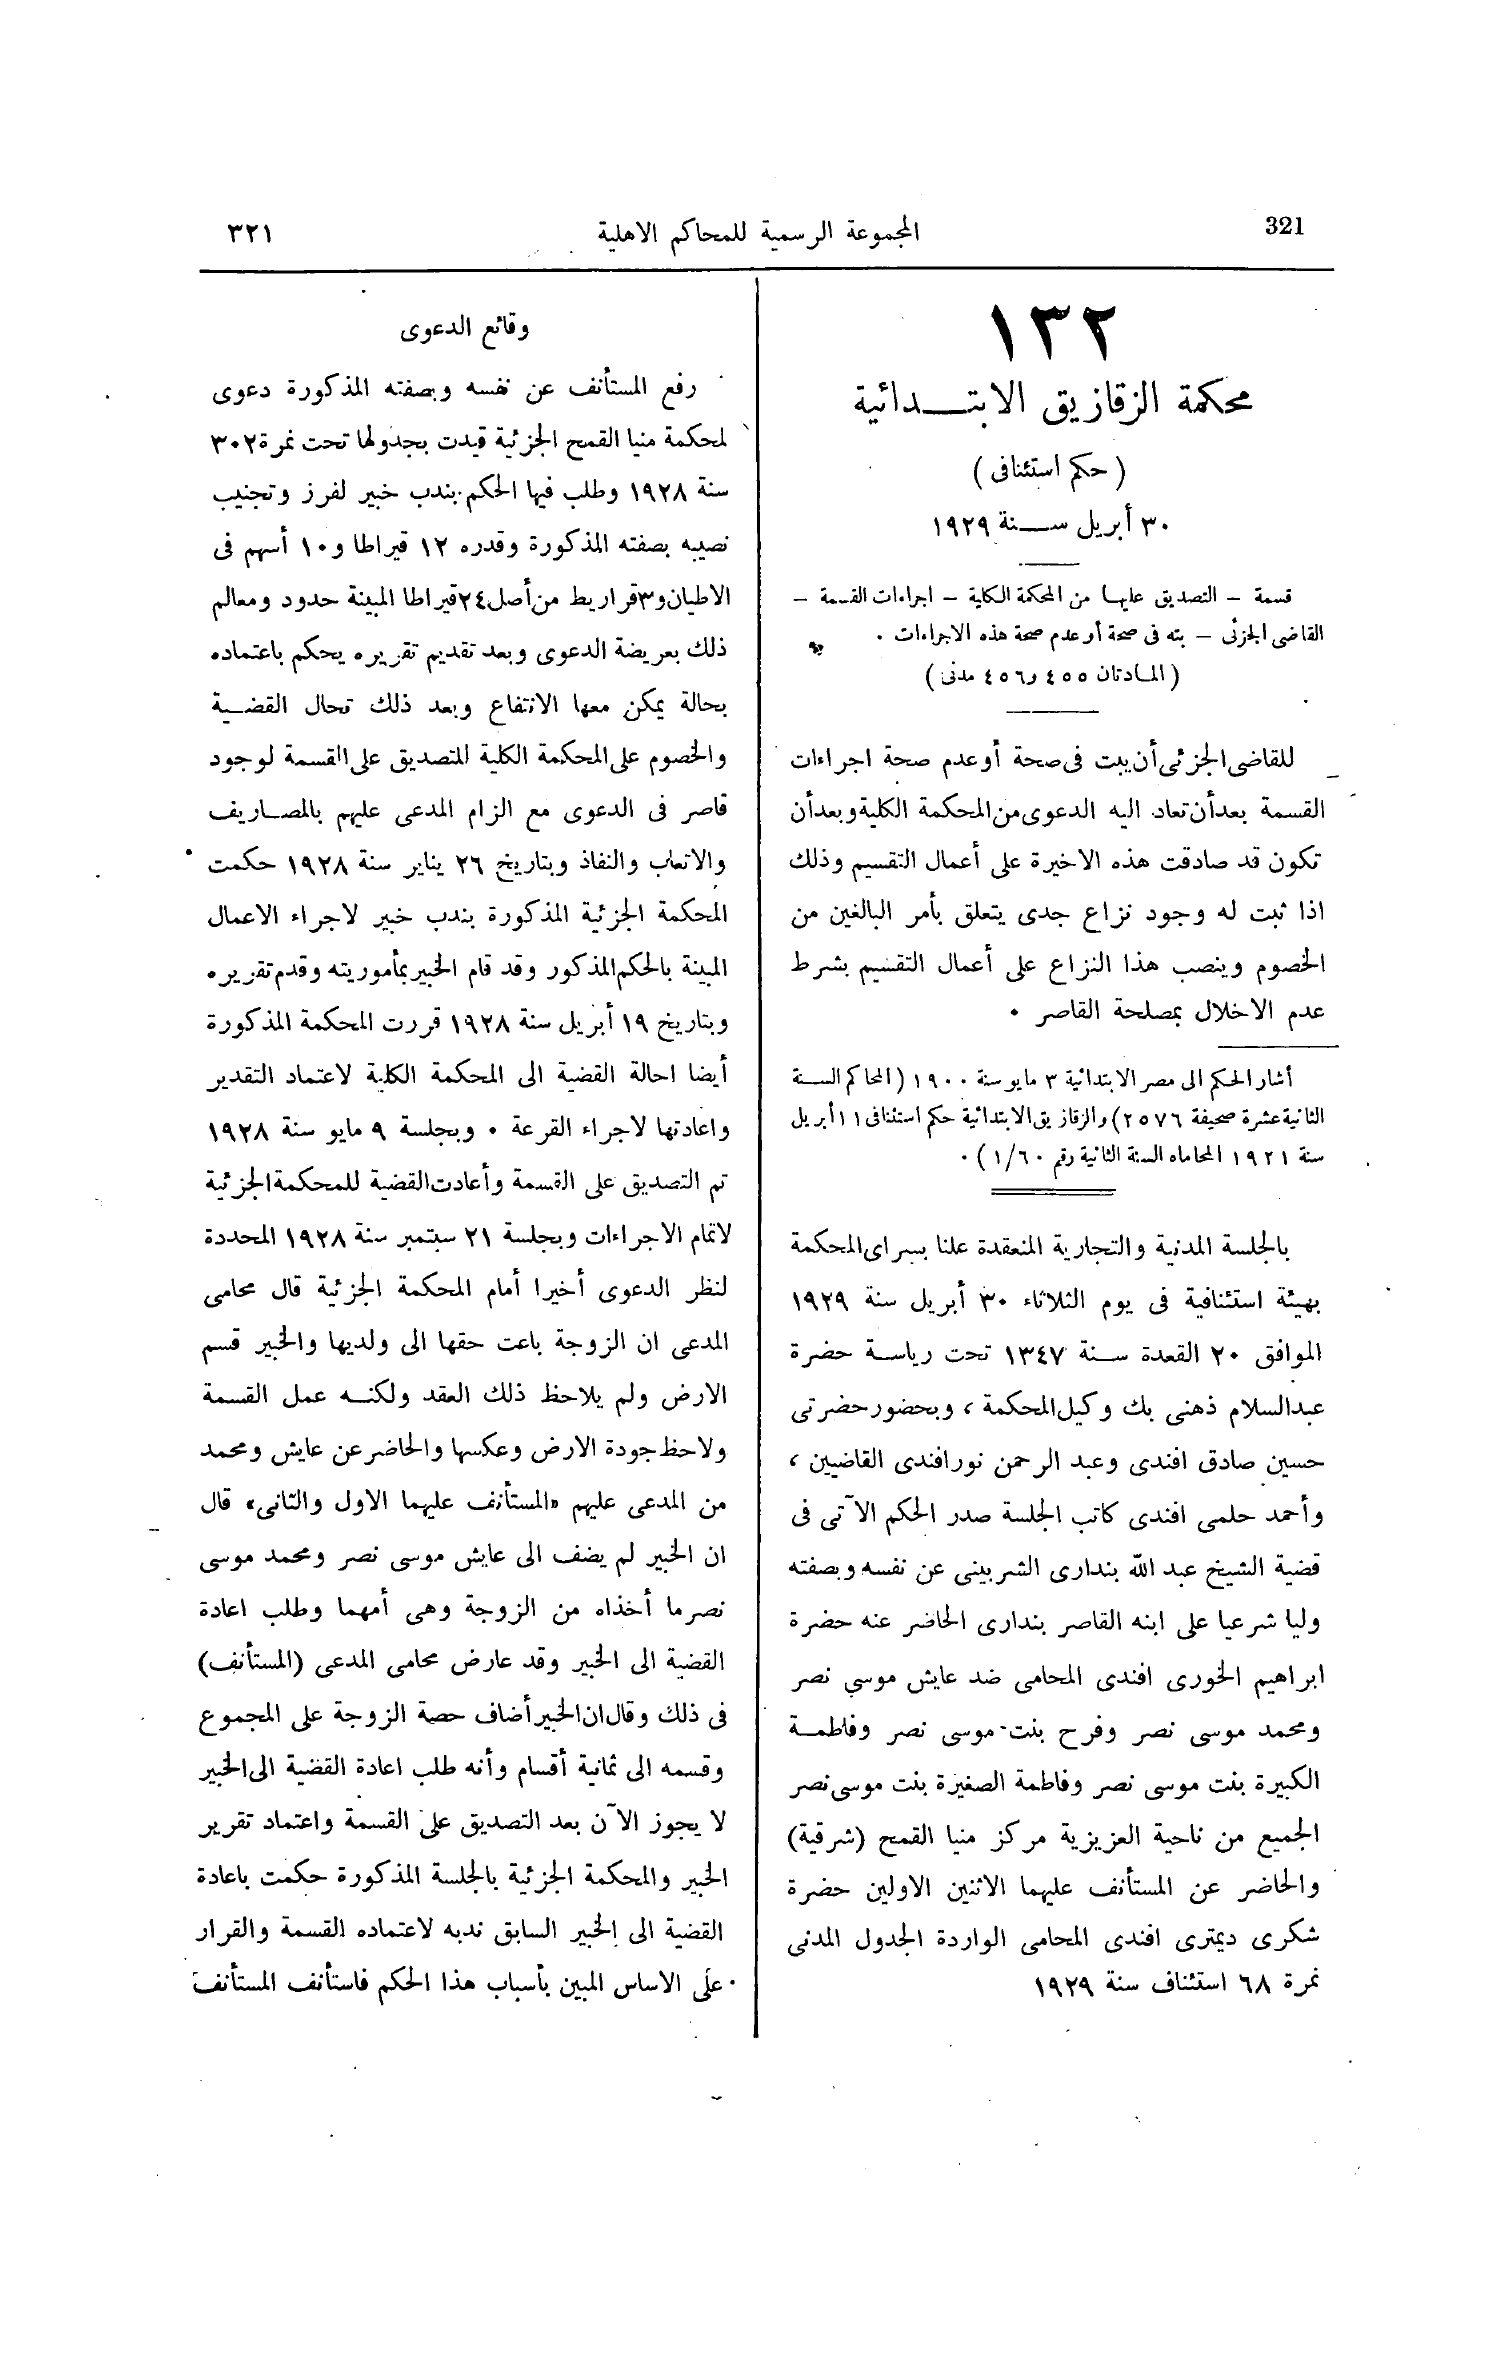 321
المجموعة الرسمية للمحاكم الاهلية
٣٢١
١٣٢
محكمة الزقازيق الابتــدائية
( حكم استئنافى )
٣٠ أبريل ســنة ١٩٢٩
قسمة – التصديق عليها من المحكمة الكلية – اجراءات القسمة –
القاضى الجزئى – بته فى صحة أو عدم صحة هذه الاجراءات .
( المادتان ٤٥٥ و٤٥٦ مدنى )
للقاضى الجزئى أن يبت فى صحة أو عدم صحة اجراءات
القسمة بعد أن تعاد اليه الدعوى من المحكمة الكلية وبعد أن
تكون قد صادقت هذه الاخيرة على أعمال التقسيم وذلك
اذا ثبت له وجود نزاع جدى يتعلق بأمر البالغين من
الخصوم وينصب هذا النزاع على أعمال التقسيم بشرط
عدم الاخلال بمصلحة القاصر .
أشار الحكم الى مصر الابتدائية ٣ مايو سنة ١٩٠٠ (المحاكم السنة
الثانية عشرة صحيفة ٢٥٧٦) والزقازيق الابتدائية حكم استئنافى ١١ أبريل
سنة ١٩٢١ المحاماه السنة الثانية رقم ١/٦٠) .
بالجلسة المدنية والتجارية المنعقدة علنا بسراى المحكمة
بهيئة استئنافية فى يوم الثلاثاء ٣٠ أبريل سنة ١٩٢٩
الموافق ٢٠ القعدة سـنة ١٣٤٧ تحت رياسة حضرة
عبد السلام ذهنى بك وكيل المحكمة ، وبحضور حضرتى
حسين صادق افندى وعبد الرحمن نور افندى القاضيين ،
وأحمد حلمى افندى كاتب الجلسة صدر الحكم الآتى فى
قضية الشيخ عبد الله بندارى الشربينى عن نفسه وبصفته
وليا شرعيا على ابنه القاصر بندارى الحاضر عنه حضرة
ابراهيم الخورى افندى المحامى ضد عايش موسي نصر
ومحمد موسى نصر وفرح بنت موسى نصر وفاطمـة
الكبيرة بنت موسى نصر وفاطمة الصغيرة بنت موسى نصر
الجميع من ناحية العزيزية مركز منيا القمح (شرقية)
والحاضر عن المستأنف عليهما الاثنين الاولين حضرة
شكرى ديمترى افندى المحامى الواردة الجدول المدنى
نمرة ٦٨ استئناف سنة ١٩٢٩
وقائع الدعوى
رفع المستأنف عن نفسه وبصفته المذكورة دعوى
لمحكمة منيا القمح الجزئية قيدت بجدولها تحت نمرة ٣٠٢
سنة ١٩٢٨ وطلب فيها الحكم بندب خبير لفرز وتجنيب
نصيبه بصفته المذكورة وقدره ١٢ قيراطا و١٠ أسهم فى
الاطيان و٣ قراريط من أصل ٢٤ قيراطا المبينة حدود ومعالم
ذلك بعريضة الدعوى وبعد تقديم تقريره يحكم باعتماده
بحالة يمكن معها الانتفاع وبعد ذلك تحال القضـية
والخصوم على المحكمة الكلية للتصديق على القسمة لوجود
قاصر فى الدعوى مع الزام المدعى عليهم بالمصـاريف
والاتعاب والنفاذ وبتاريخ ٢٦ يناير سنة ١٩٢٨ حكمت
المحكمة الجزئية المذكورة بندب خبير لاجراء الاعمال
المبينة بالحكم المذكور وقد قام الخبير بمأموريته وقدم تقريره
وبتاريخ ١٩ أبريل سنة ١٩٢٨ قررت المحكمة المذكورة
أيضا احالة القضية الى المحكمة الكلية لاعتماد التقدير
واعادتها لاجراء القرعة . وبجلسة ٩ مايو سنة ١٩٢٨
تم التصديق على القسمة وأعادت القضية للمحكمة الجزئية
لاتمام الاجراءات وبجلسة ٢١ سبتمبر سنة ١٩٢٨ المحددة
لنظر الدعوى أخيرا أمام المحكمة الجزئية قال محامى
المدعى ان الزوجة باعت حقها الى ولديها والخبير قسم
الارض ولم يلاحظ ذلك العقد ولكنـه عمل القسمة
ولاحظ جودة الارض وعكسها والحاضر عن عايش ومحمد
من المدعى عليهم «المستأنف عليهما الاول والثانى» قال
ان الخبير لم يضف الى عايش موسى نصر ومحمد موسى
نصر ما أخذاه من الزوجة وهى أمهما وطلب اعادة
القضية الى الخبير وقد عارض محامى المدعى (المستأنف)
فى ذلك وقال ان الخبير أضاف حصة الزوجة على المجموع
وقسمه الى ثمانية أقسام وأنه طلب اعادة القضية الى الخبير
لا يجوز الآن بعد التصديق على القسمة واعتماد تقرير
الخبير والمحكمة الجزئية بالجلسة المذكورة حكمت باعادة
القضية الى الخبير السابق ندبه لاعتماده القسمة والقرار
على الاساس المبين بأسباب هذا الحكم فاستأنف المستأنف